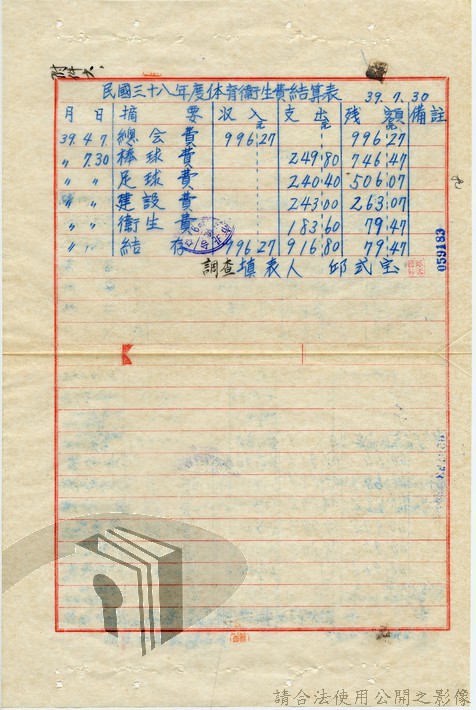 附件六
民國三十八年度体育衛生費結算表 39.7.30
月 日 摘 要 收 入 支 出 残 額 備註
元 元 元
39.4.7. 總会費 996.27 996.27
〃 7.30 棒球費 249.80 746.47
〃 〃 足球費 240.40 506.07
〃 〃 建設費 243.00 263.07
〃 〃 衛生費 183.60 79.47
〃 〃 結存 996.27 916.80 79.47
調查填表人 邱式宝
059183
請合法使用公開之影像